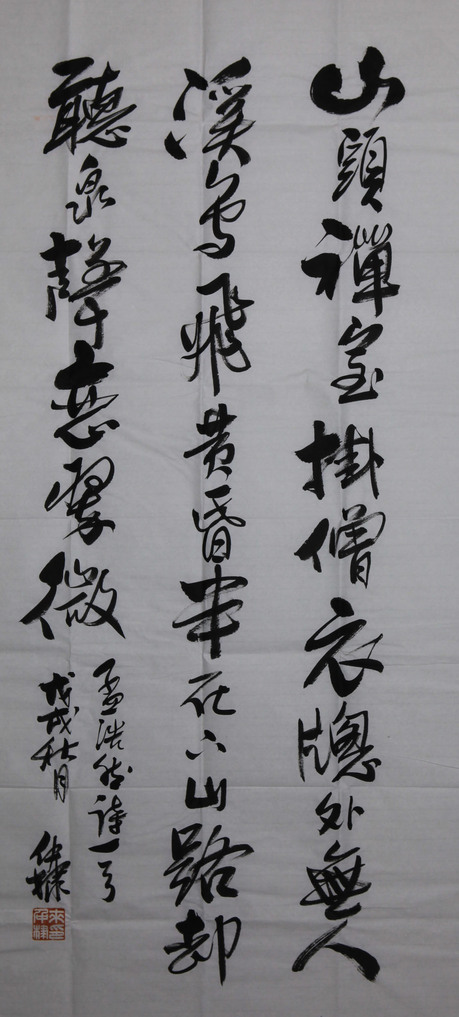 山頭禪室掛僧衣牕外無人
溪鳥飛黃昏半在下山路却
聽泉聲恋翠微
孟浩然詩一首
戊戌秋月